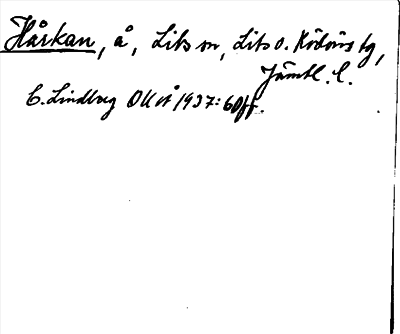 Hårkan, å, Lits sn, Lits o. Rödöns tg,
Jämtl. l.
C. Lindberg OUÅ 1937: 60 ff.